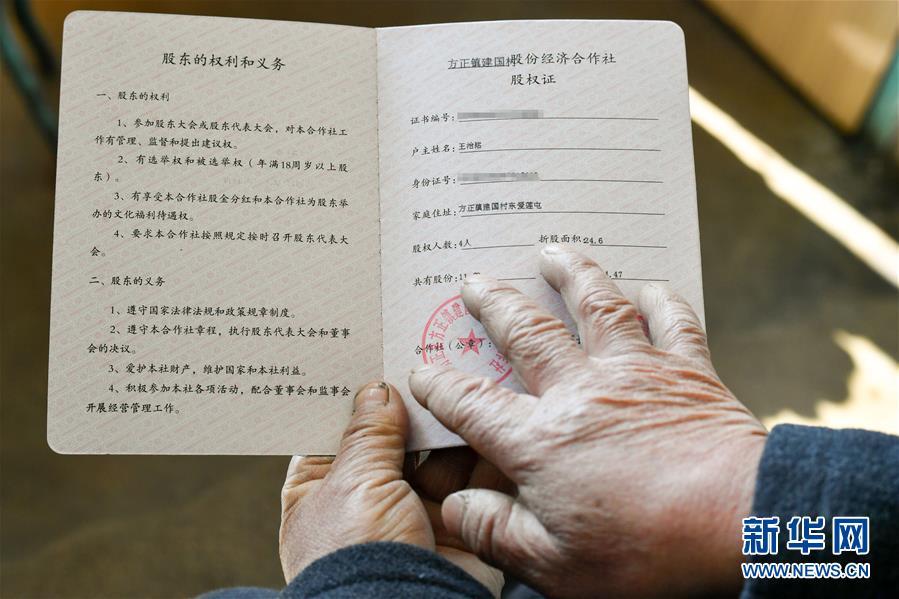 股东的权利和义务
一、股东的权利
1、参加股东大会或股东代表大会，对本合作社工
作有管理、监督和提出建议权。
2、有选举权和被选举权（年满18周岁以上股
东）。
3、有享受本合作社股金分红和本合作社为股东举
办的文化福利待遇权。
4、要求本合作社按照规定按时召开股东代表大
会。
二、股东的义务
1、遵守国家法律法规和政策规章制度。
2、遵守本合作社章程，执行股东代表大会和董事
会的决议。
3、爱护本社财产，维护国家和本社利益。
4、积极参加本社各项活动，配合董事会和监事会
开展经营管理工作。
方正镇建国村股份经济合作社
股权证
证书编号：
户主姓名：王治
身份证号：
家庭住址：方正镇建国村东爱莲屯
股权人数：4人 折股面积：24.6
共有股份：
合作社（公章）：
方正镇建
新华网
WWW.NEWS.CN